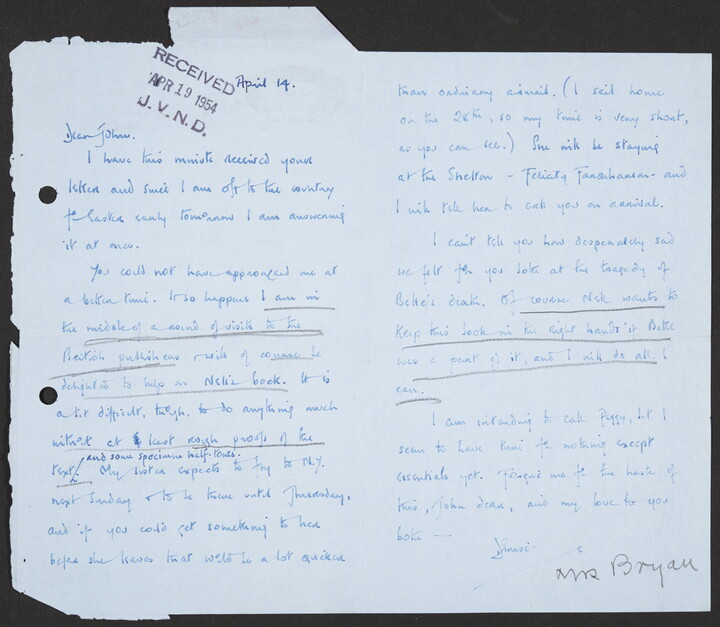 RECEIVED
APR 19 1954
J. V. N. D.
April 14.
Dear John.
I have this minute received your
letter and since I am off to the country
for Easter early tomorrow I am answering
it at once.
You could not have approached me at
a better time. It so happens I am in
the middle of a round of visits to the
British publishers & will of course be
delighted to help on book. It is
a bit difficult, though, to do anything much
without at least rough proofs of the
and some specimen half-tones.
text! My sister expects to fly to N.Y.
next Sunday & to be there until Thursday,
and if you could get something to her
before she leaves that would be a lot quicker
than ordinary airmail. (I sail home
on the 28th, so my time is very short,
as you can see.) She will be staying
at the Shelton - Felicity - and
I will tell her to call you on arrival.
I can't tell you how desperately sad
we felt for you both at the tragedy of
death. Of course wants to
keep this book in the right hands if
was a part of it, and I will do all I
can.
I am intending to call Peggy, but I
seem to have time for nothing except
essentials yet. Forgive me for the haste of
this, John dear, and my love to you
both —
Mrs Bryan